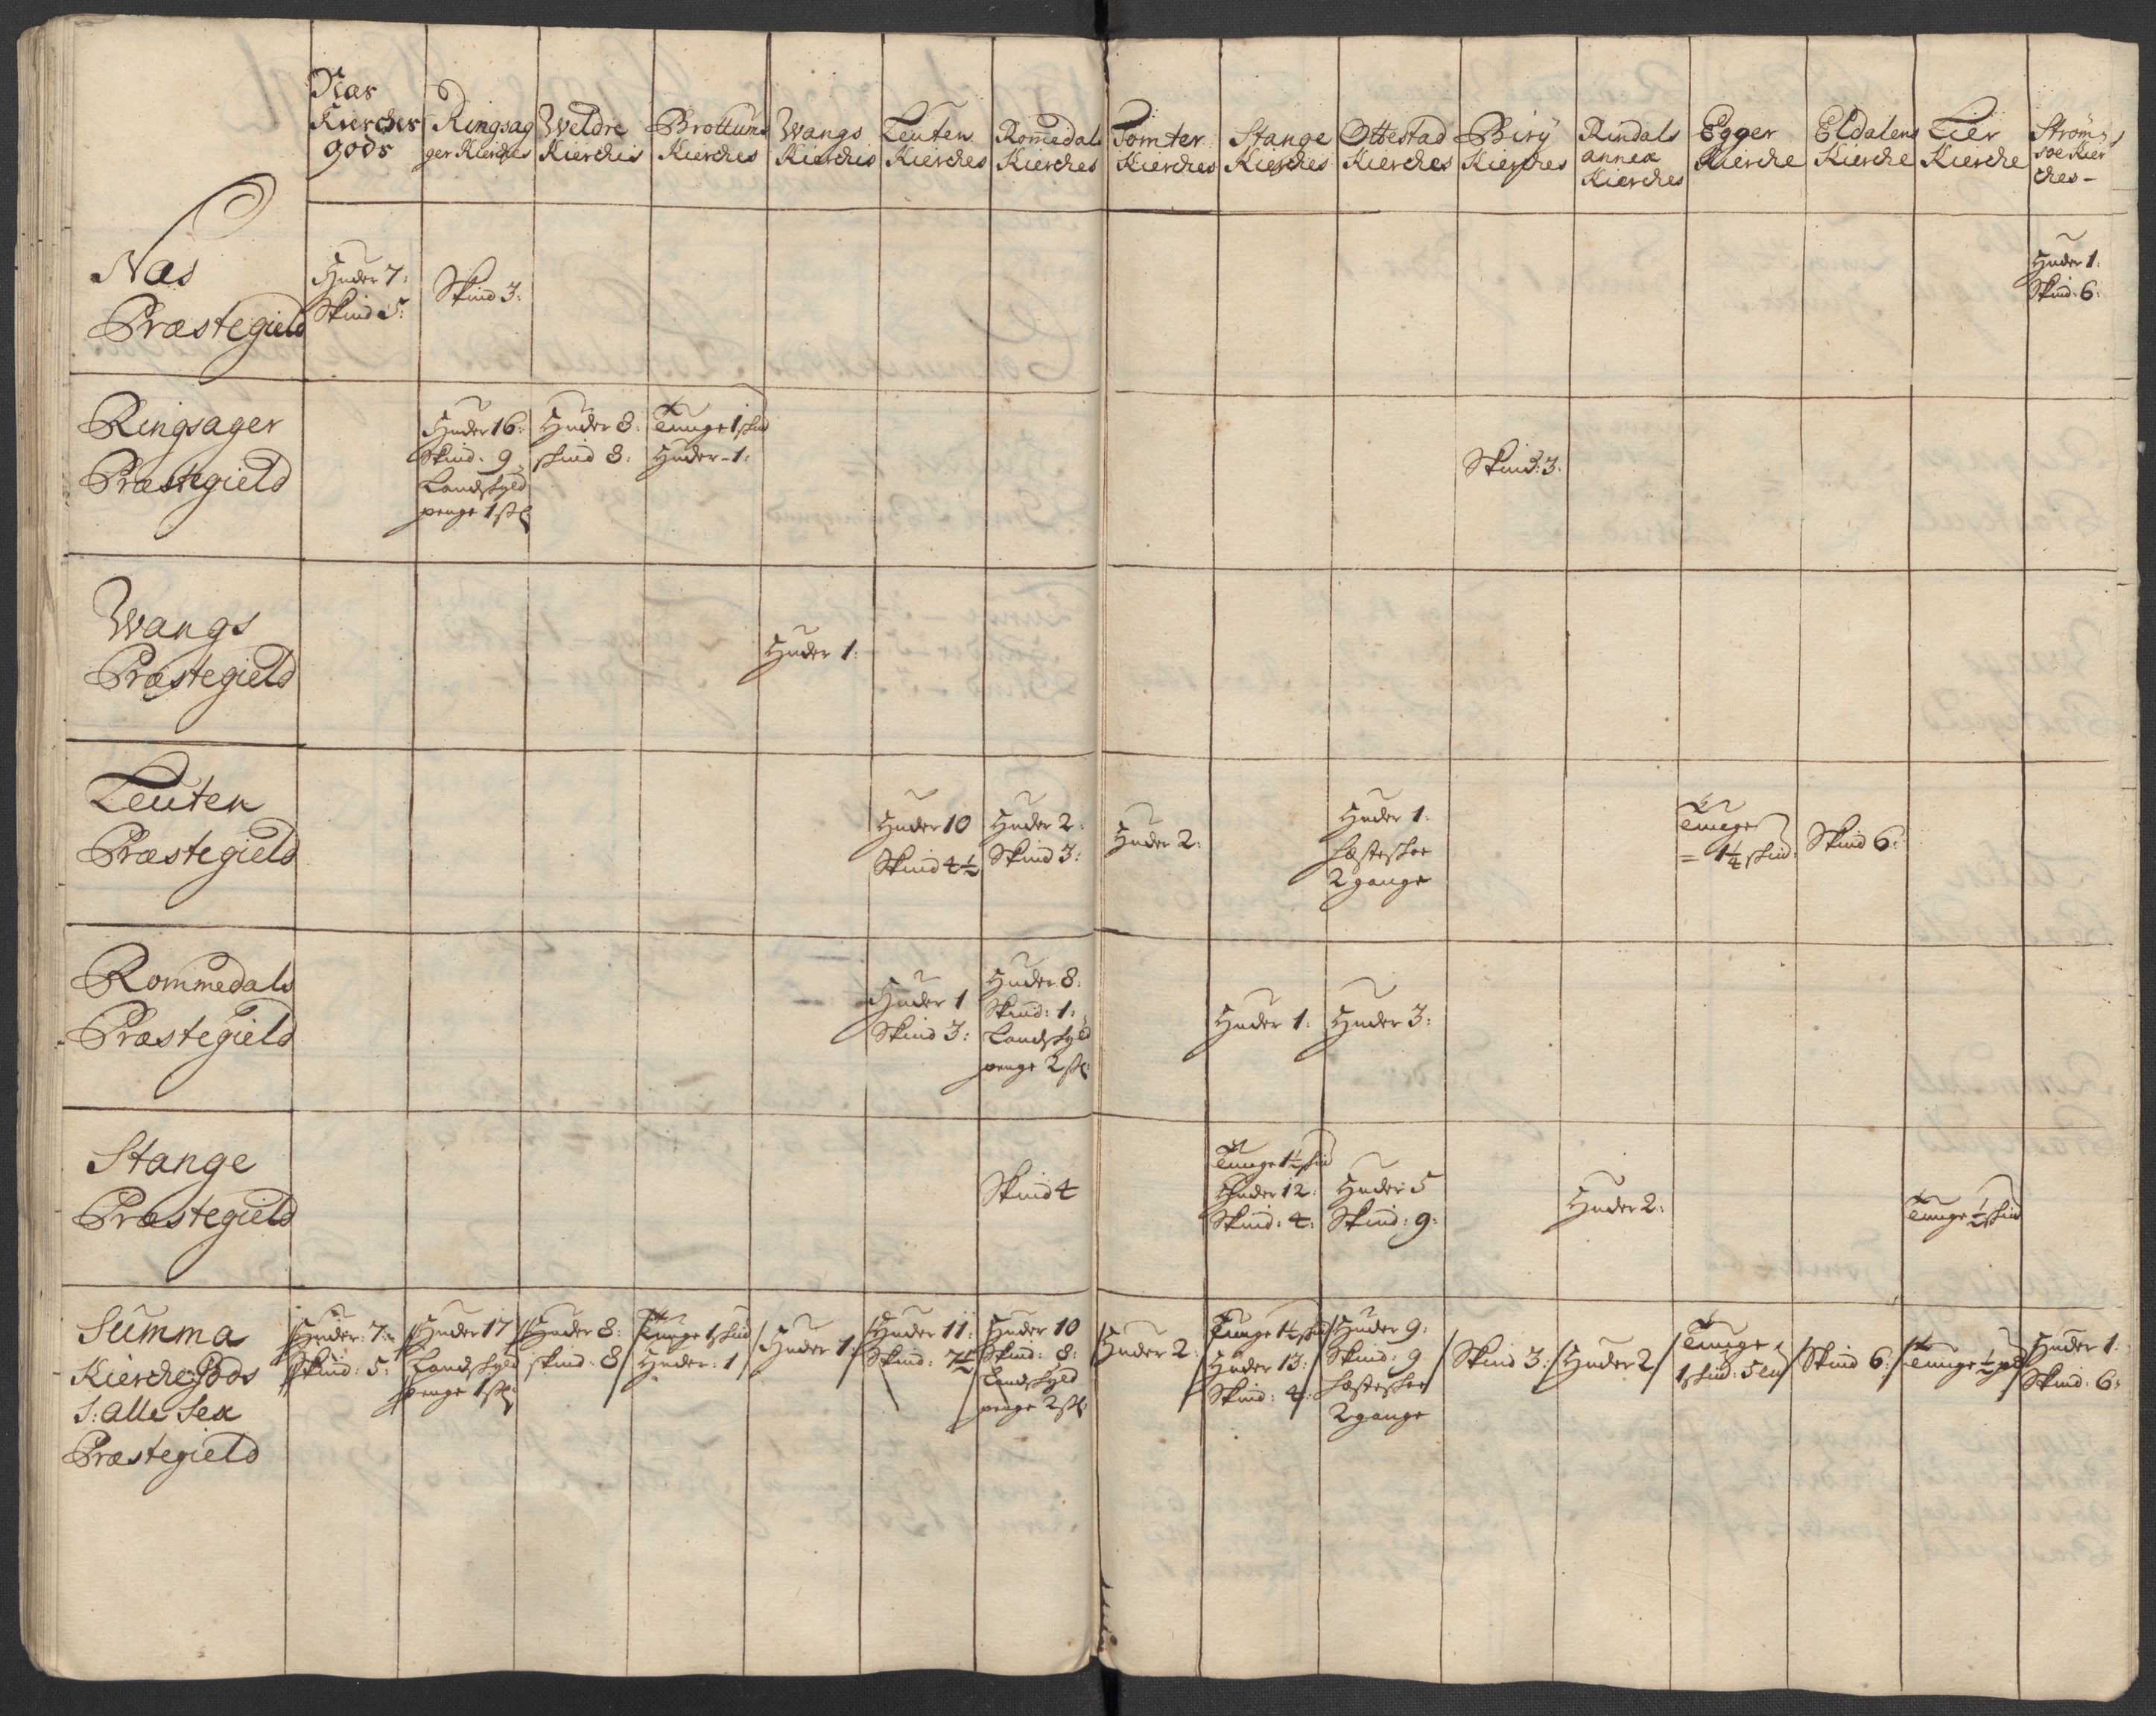 Næs
Kierches
gods
Ringsag
ger Kierches
Weldre
Kierchis
Brottums
Kierches
Wangs
Kierchis
Leuten
Kierches
Rommedals
Kierches
Tomter
Kierches
Stange
Kierches
Ottestad
Kierches
Birij
Kierches
Rindals
annex
Kierches
Egger
Kierche
Eldalens
Kierche
Lier
Kierche
Strøms
øe Kier
ches-
Næs
Præstegield
Huder 7:
Skind 5:
Skind 3:
Huder 1:
Skind: 6:
Ringsager
Præstegield
Huder 16:
Skind: 9
Landskyld
penge 1 ß
Huder 8:
skind 8:
Tunge 1 skud
Huder - 1:
Skind: 3:
Wangs
Præstegield
Huder 1:
Leuten
Præstegield
Huder 10
Skind 4½
Huder 2:
Skind 3:
Huder 2:
Huder 1:
Hesteskoe
2 gange
Tunge
= 1¼ skud:
Skind 6:
Rommedals
Præstegield
Huder 1
Skind 3:
Huder 8:
Skind: 1:
Landskyld
penge 2 ß
Huder 1:
Huder 3:
Stange
Præstegield
Skind 4
Tunge 1½ skud
Huder 12:
Skind: 4:
Huder 5
Skind: 9:
Huder 2:
Tunge ½ skud
Summa
Kierche Gods
I: alle Sex
Præstegield
Huder: 7:
Skind: 5:
Huder 17
Landskyld
penge 1 ß
Huder 8:
skind: 8
Tunge 1 skud
Huder: 1
Huder 1:
Huder 11:
Skind: 7½
Huder 10
Skind: 8:
Landskyld
penge 2 ß
Huder 2
Tunge 1½ skud
Huder 13:
Skind: 4:
Huder 9:
Skind: 9
Hesteskoe
2 gange
Skind 3:
Huder 2
Tunge
1 skud: 5
Skind 6:
Tunge ½
Huder 1:
Skind: 6: